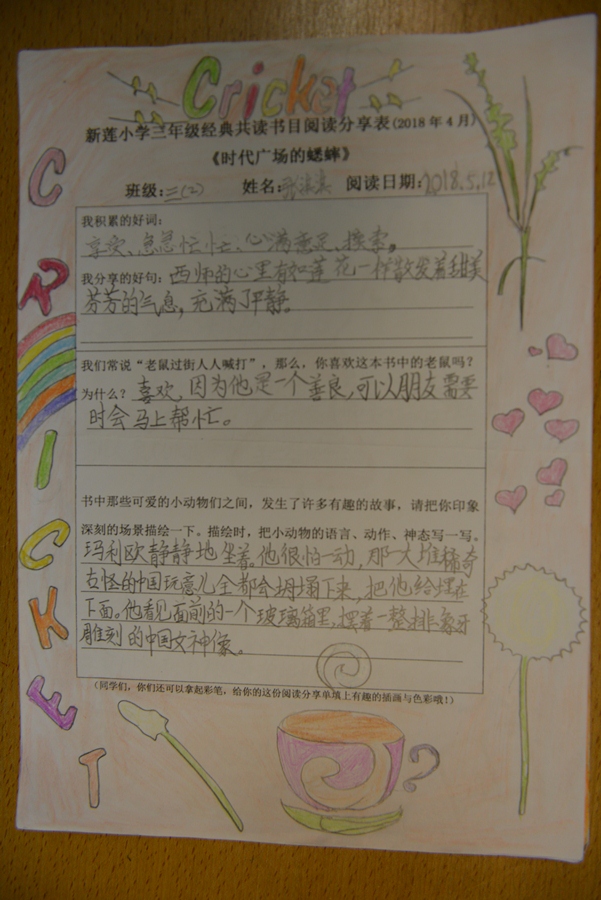 Cricket
新莲小学三年级经典共读书目阅读分享表(2018年4月)
《时代广场的蟋蟀》
班级:三(2) 姓名: 阅读日期:2018.5.12
我积累的好词:
享受、急急忙忙、心满意足、搜索。
我分享的好句:西师的心里有如莲花一样散发着甜美
芬芳的气息,充满了平静。
我们常说“老鼠过街人人喊打”,那么,你喜欢这本书中的老鼠吗?
为什么?喜欢,因为他是一个善良,可以朋友需要
时会马上帮忙。
书中那些可爱的小动物们之间,发生了许多有趣的故事,请把你印象
深刻的场景描绘一下。描绘时,把小动物的语言、动作、神态写一写。
玛利欧静静地坐着。他很怕一动,那一大堆稀奇
古怪的中国玩意儿全都会坍塌下来,把他给埋在
下面。他看见面前的一个玻璃箱里,摆着一整排象牙
雕刻的中国女神像。
(同学们,你们还可以拿起彩笔,给你的这份阅读分享单填上有趣的插画与色彩哦!)
CRICKET
?